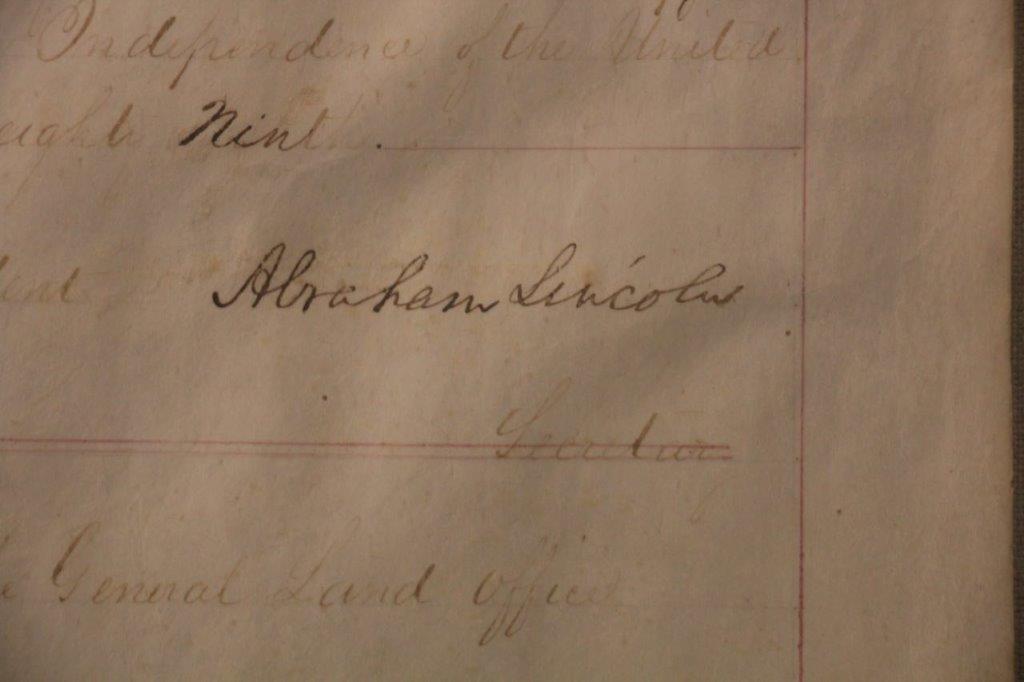 Independence of the United
eighty Ninth.
dent Abraham Lincoln
Secretary
General Land Office